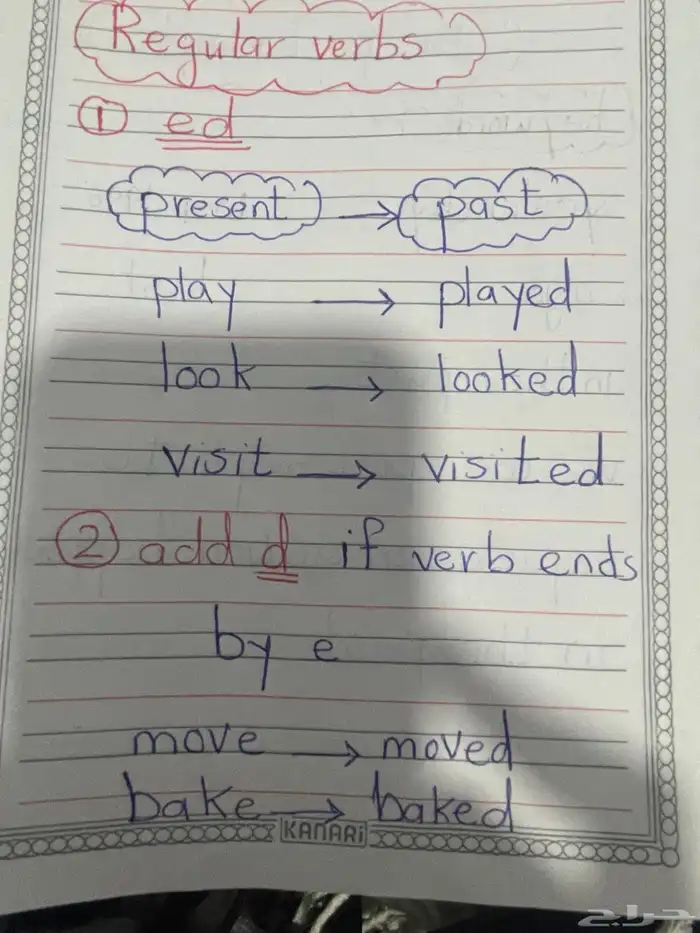 Regular verbs
① ed
present → past
play → played
look → looked
visit → visited
② add d if verb ends
by e
move → moved
bake → baked
KANARi
حراج